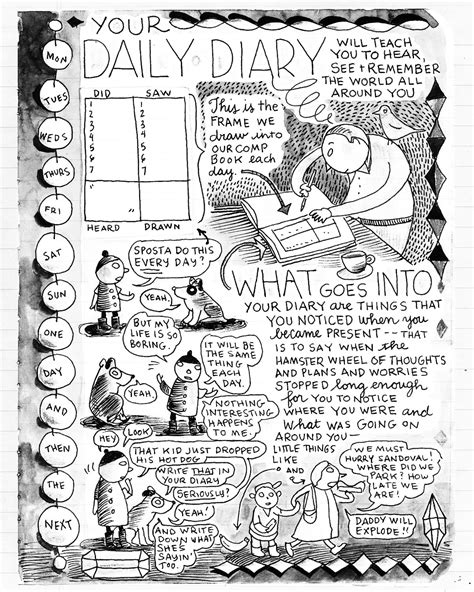 YOUR
DAILY DIARY
WILL TEACH
YOU TO HEAR,
SEE + REMEMBER
THE WORLD ALL
AROUND YOU
MON
TUES
WEDS
THURS
FRI
SAT
SUN
ONE
DAY
AND
THEN
THE
NEXT
DID SAW
1 1
2 2
3 3
4 4
5 5
6 6
7 7
HEARD DRAWN
This is the
FRAME WE
draw into
OUR COMP
BOOK each
day.
SPOSTA DO THIS
EVERY DAY?
YEAH.
BUT MY
LIFE IS SO
BORING.
YEAH
IT WILL BE
THE SAME
THING
EACH
DAY.
NOTHING
INTERESTING
HAPPENS
TO ME.
HEY
LOOK
THAT KID JUST DROPPED
HIS HOT DOG!
WRITE THAT IN
YOUR DIARY
SERIOUSLY?
YEAH!
AND WRITE
DOWN WHAT
SHE'S
SAYIN'
TOO.
WHAT GOES INTO
YOUR DIARY are THINGS THAT
YOU NOTICED when you
became PRESENT -- THAT
IS TO SAY WHEN the
HAMSTER WHEEL OF THOUGHTS
AND PLANS AND WORRIES
STOPPED long enough
for YOU TO NOTICE
WHERE YOU WERE and
WHAT WAS GOING ON
AROUND YOU—
LITTLE THINGS
LIKE
AND
WE MUST
HURRY SANDOVAL!
WHERE DID WE
PARK? HOW
LATE WE
ARE!
DADDY WILL
EXPLODE!!